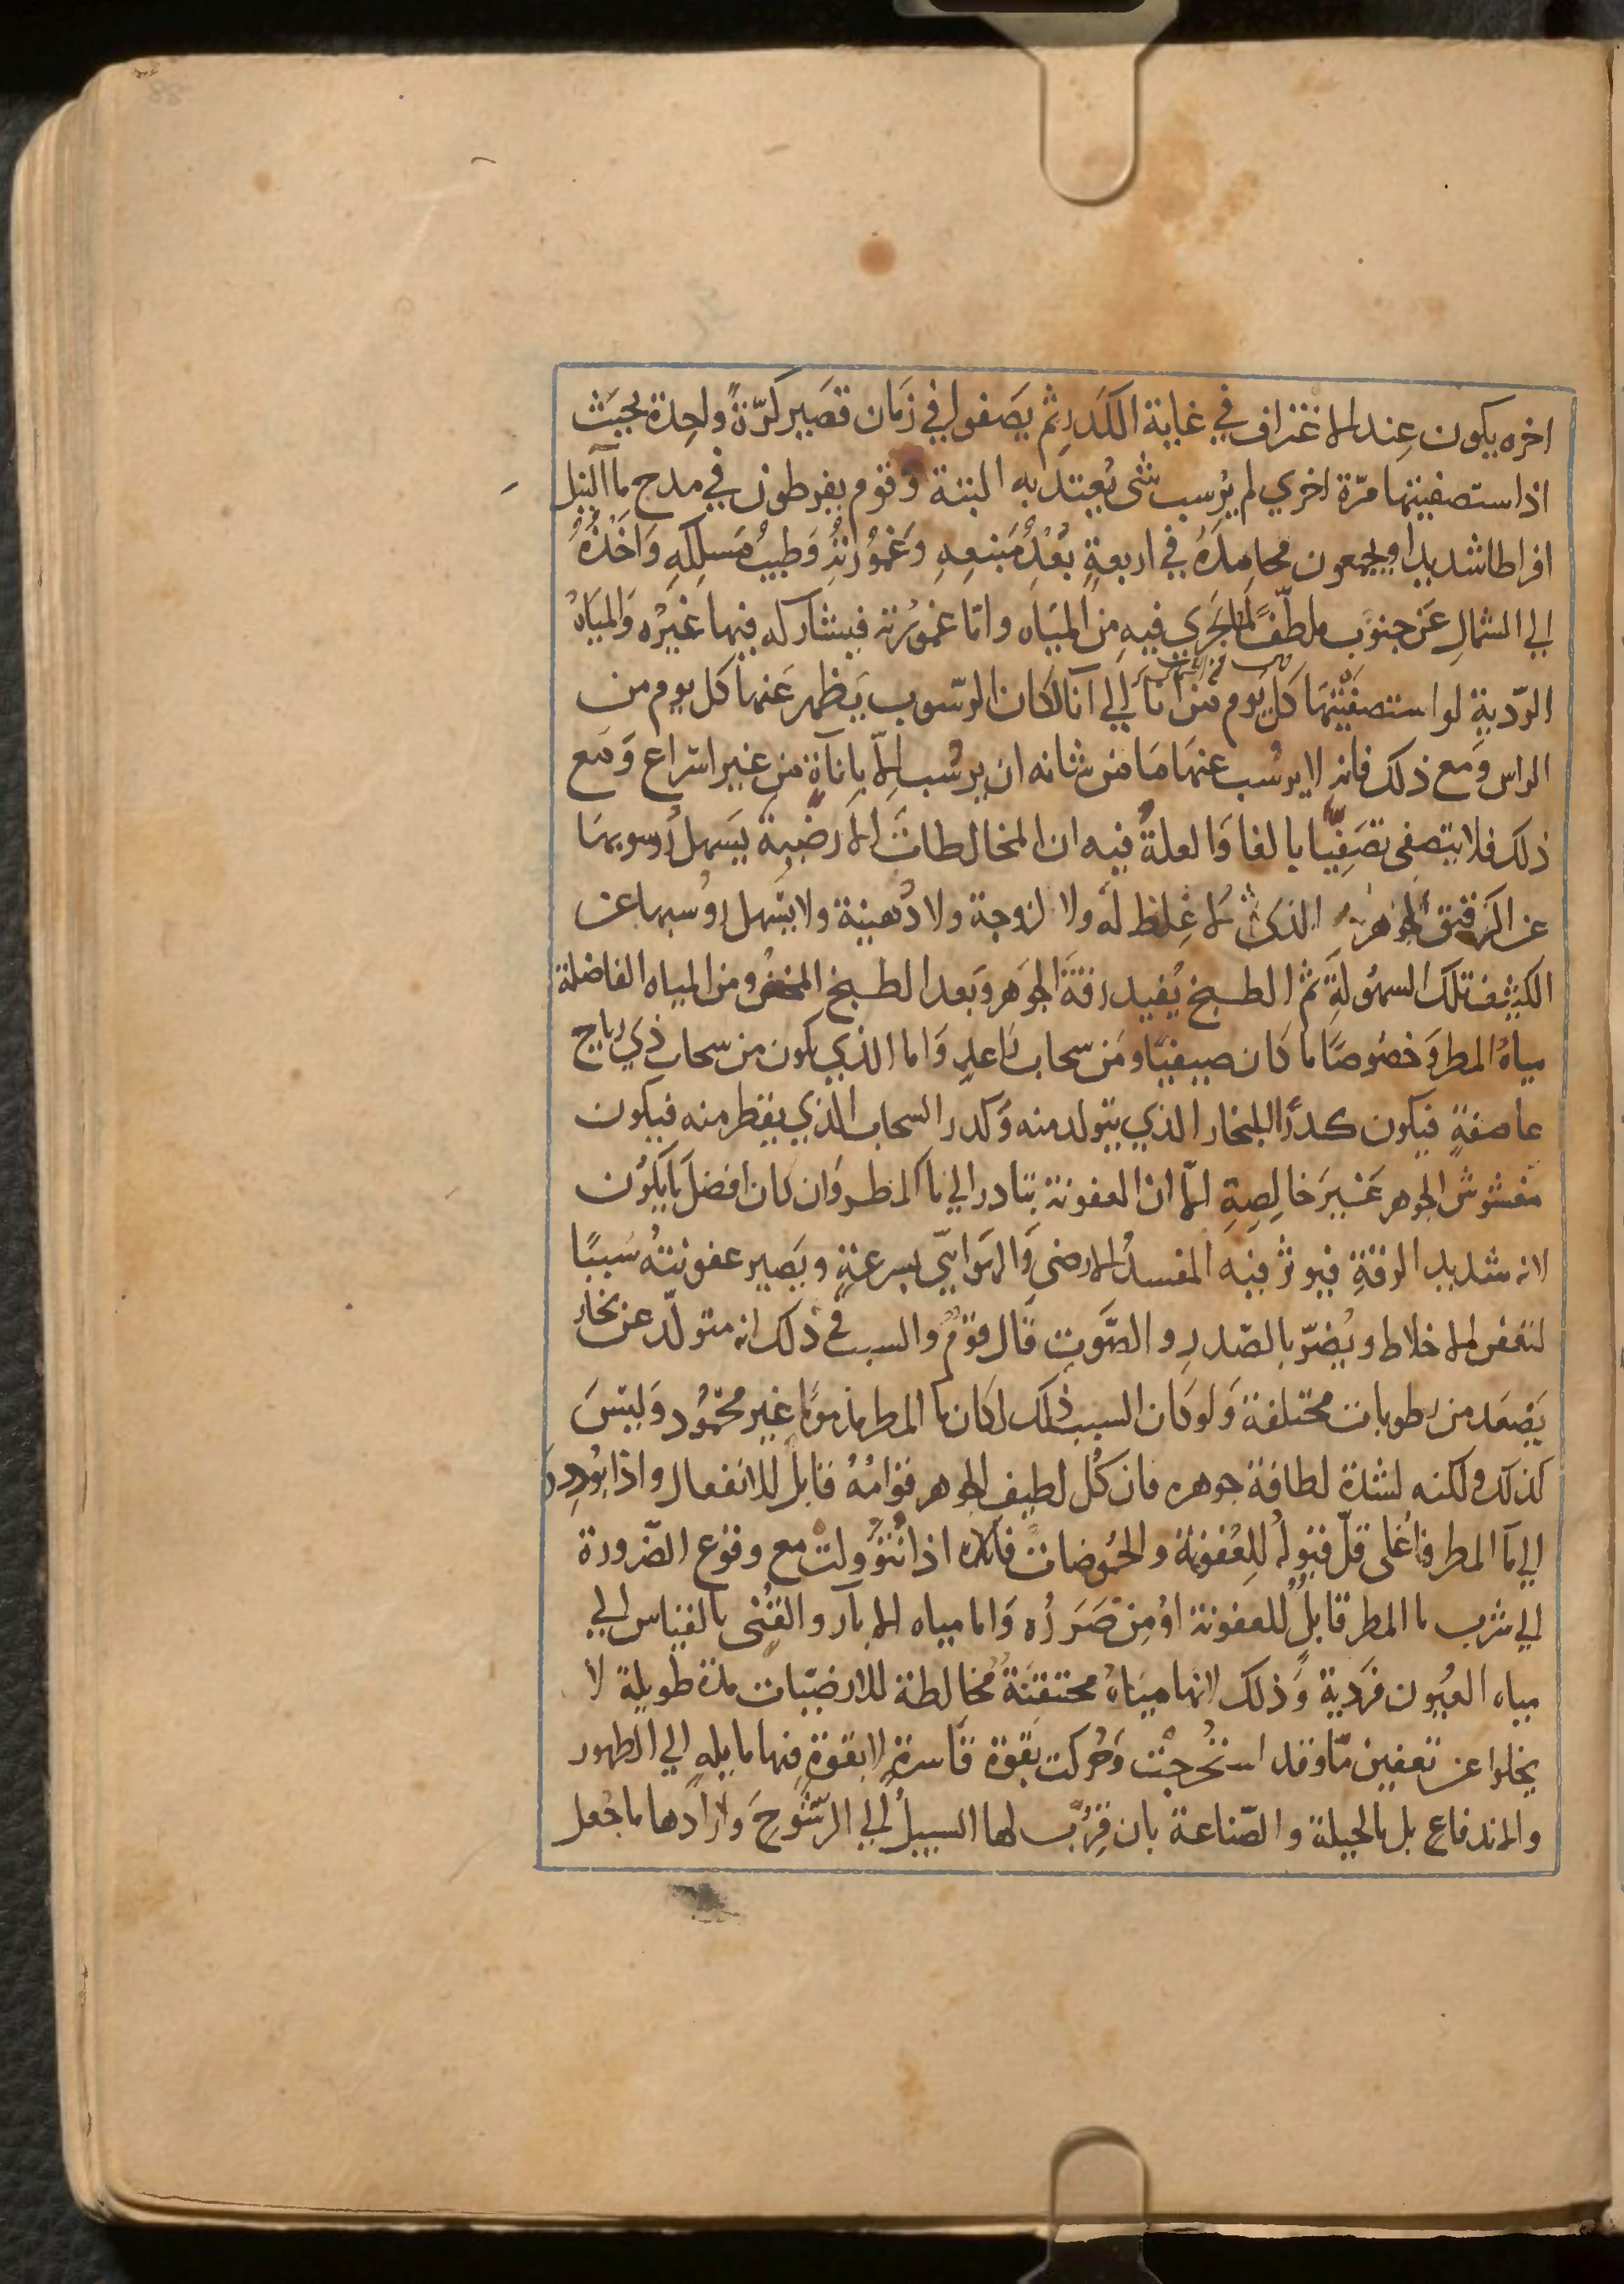 اخره يكون عند الاغتراف في غاية الكدر ثم يصفوا في زمان قصير كرّةً واحدة بحيث
اذا ستصفيتها مرّة اخري لم يرسب شي يُعتد به البتة وقوم يفرطون في مدح ماآلنيل
افراطا شديدا ويجمعون محامده في اربعةٍ بُعْدُ مَنبعهِ وَغمُورته وَطيب مَسلكهِ وَاخذُهُ
الي الشمالِ عَن جنوب ملطّفًا لما يجري فيه من المياه وامّا غمورته فيشاركه فيها غيرُه وَالمياهُ
الردّيةِ لواستصفيتها كل يوم من انآ الي انآ لكان الرسّوب يظهر عَنها كل يوم من
الراس وَمع ذلك فانه لا يرسُب عنها مَا من شانه ان يرسُب الاّ باناةٍ من غير اسراع وَمع
ذلك فلا يتصفي تصَفّيا بالغا وَالعلةُ فيه ان المخالطات الارضية يَسهل رسوبها
عن الرقيق الجوهر الذي لا غِلظ له ولا لزوجة ولا دُهنية ولا يسهل رسُبها عن
الكثيف تلك السهُولةِ ثم الطبخ يُفيد رقة الجَوهر وبَعد الطبخ المخض ومن المياه الفاضلة
مياهُ المطر وَخصُوصًا ما كان صيفيّا ومَن سحاب راعدٍ وَاما الذي يكون من سحاب ذي رياح
عاصفةٍ فيكون كدرُ البخار الذي يتولد منه وَكدر السحاب الذي يقطر منه فيكون
مغشوش الجوهر غيرَ خالِصِهِ الاّ ان العفونة تبادر الي ماآلمطر وَان كان افضل ما يكون
لانه شديد الرقةِ فيوثر فيه المفسدُ الارضي وَالهوايّي بسرعةٍ وتَصير عفونتهُ سَببًا
لتعفن الاخلاط ويُضرّ بالصّدرِ و الصَّوتِ قال قومٌ والسبب في ذلك انه متولّد عن بخارٍ
يَصعَد من رطوبات مختلفة وَلو كان السبب ذلك لكان ما المطر مذمومًا غير محمُود وَليسَ
كذلك ولكنه لشدة لطافة جوهره فان كُل لطيفِ الجوهر قوامُهُ قابل للانفعال واذا بُودِرَ
الي مآ المطر فاغلي قلّ قبولُه للِعُفونة والحمُوضات اذا تُنُوولت مع وقوع الضّرورة
الي شرب ما المطر قابلٌ للعفونة اوُمِن ضَرَرُه وَاما مياه الابار و القُني بالقياس الي
مياه العيُون فرَدية وَذلك لانها ميَاهُ محتقنةُ مُخالِطة للارضيّات مدة طويلة لا
يخلوا عن تعفين مّا وقد استُخرجْت وَحُركت بقوة قاسرةٍ لا بقوةٍ فِنها مايلهٍ الي الظهور
والاندفاعِ بل بالحيلة والصّناعة بان قرّب لها السبيلُ الي الرّشوحِ وَارآدها ما جُعل